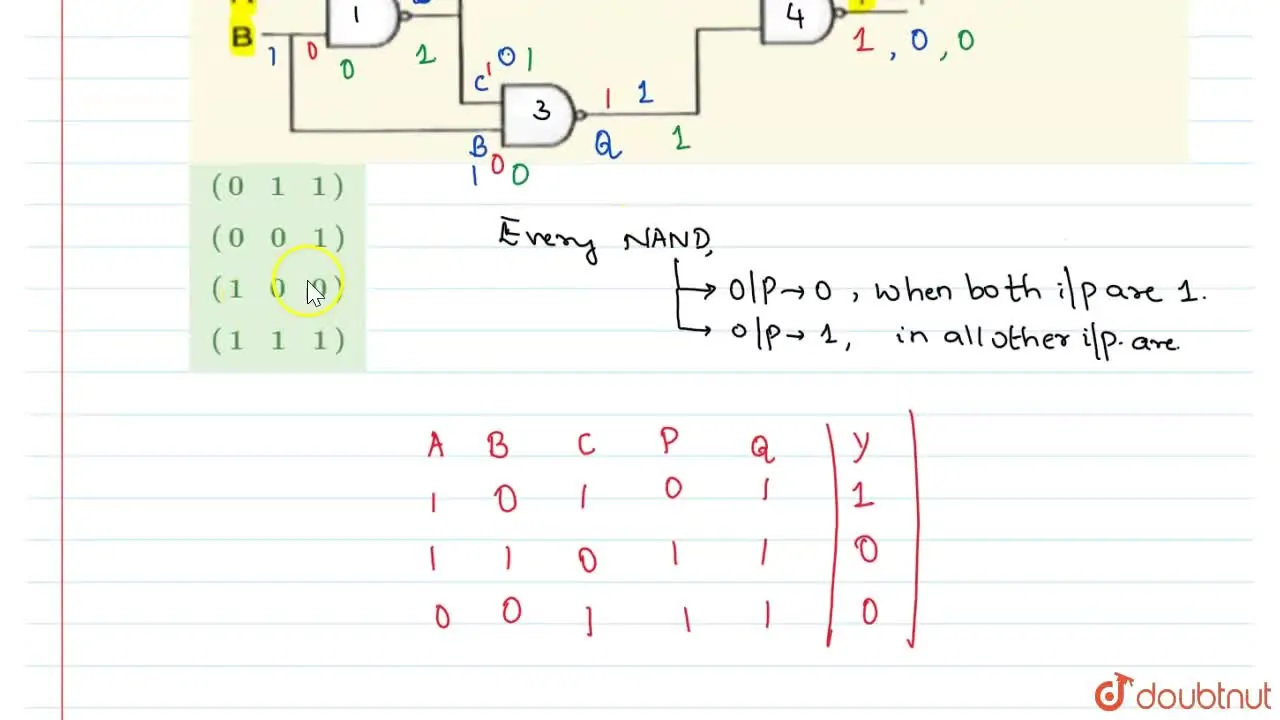 1
4
B
1 0 0
1
1 , 0 , 0
C 1 0 1
3
1 1
B 0
1 0
Q
1
(0 1 1)
(0 0 1)
(1 0 0)
(1 1 1)
Every NAND,
O/P → 0 , when both i/p are 1.
O/P → 1, in all other i/p. are
A B C P Q Y
1 0 1 0 1 1
1 1 0 1 1 0
0 0 1 1 1 0
doubtnut